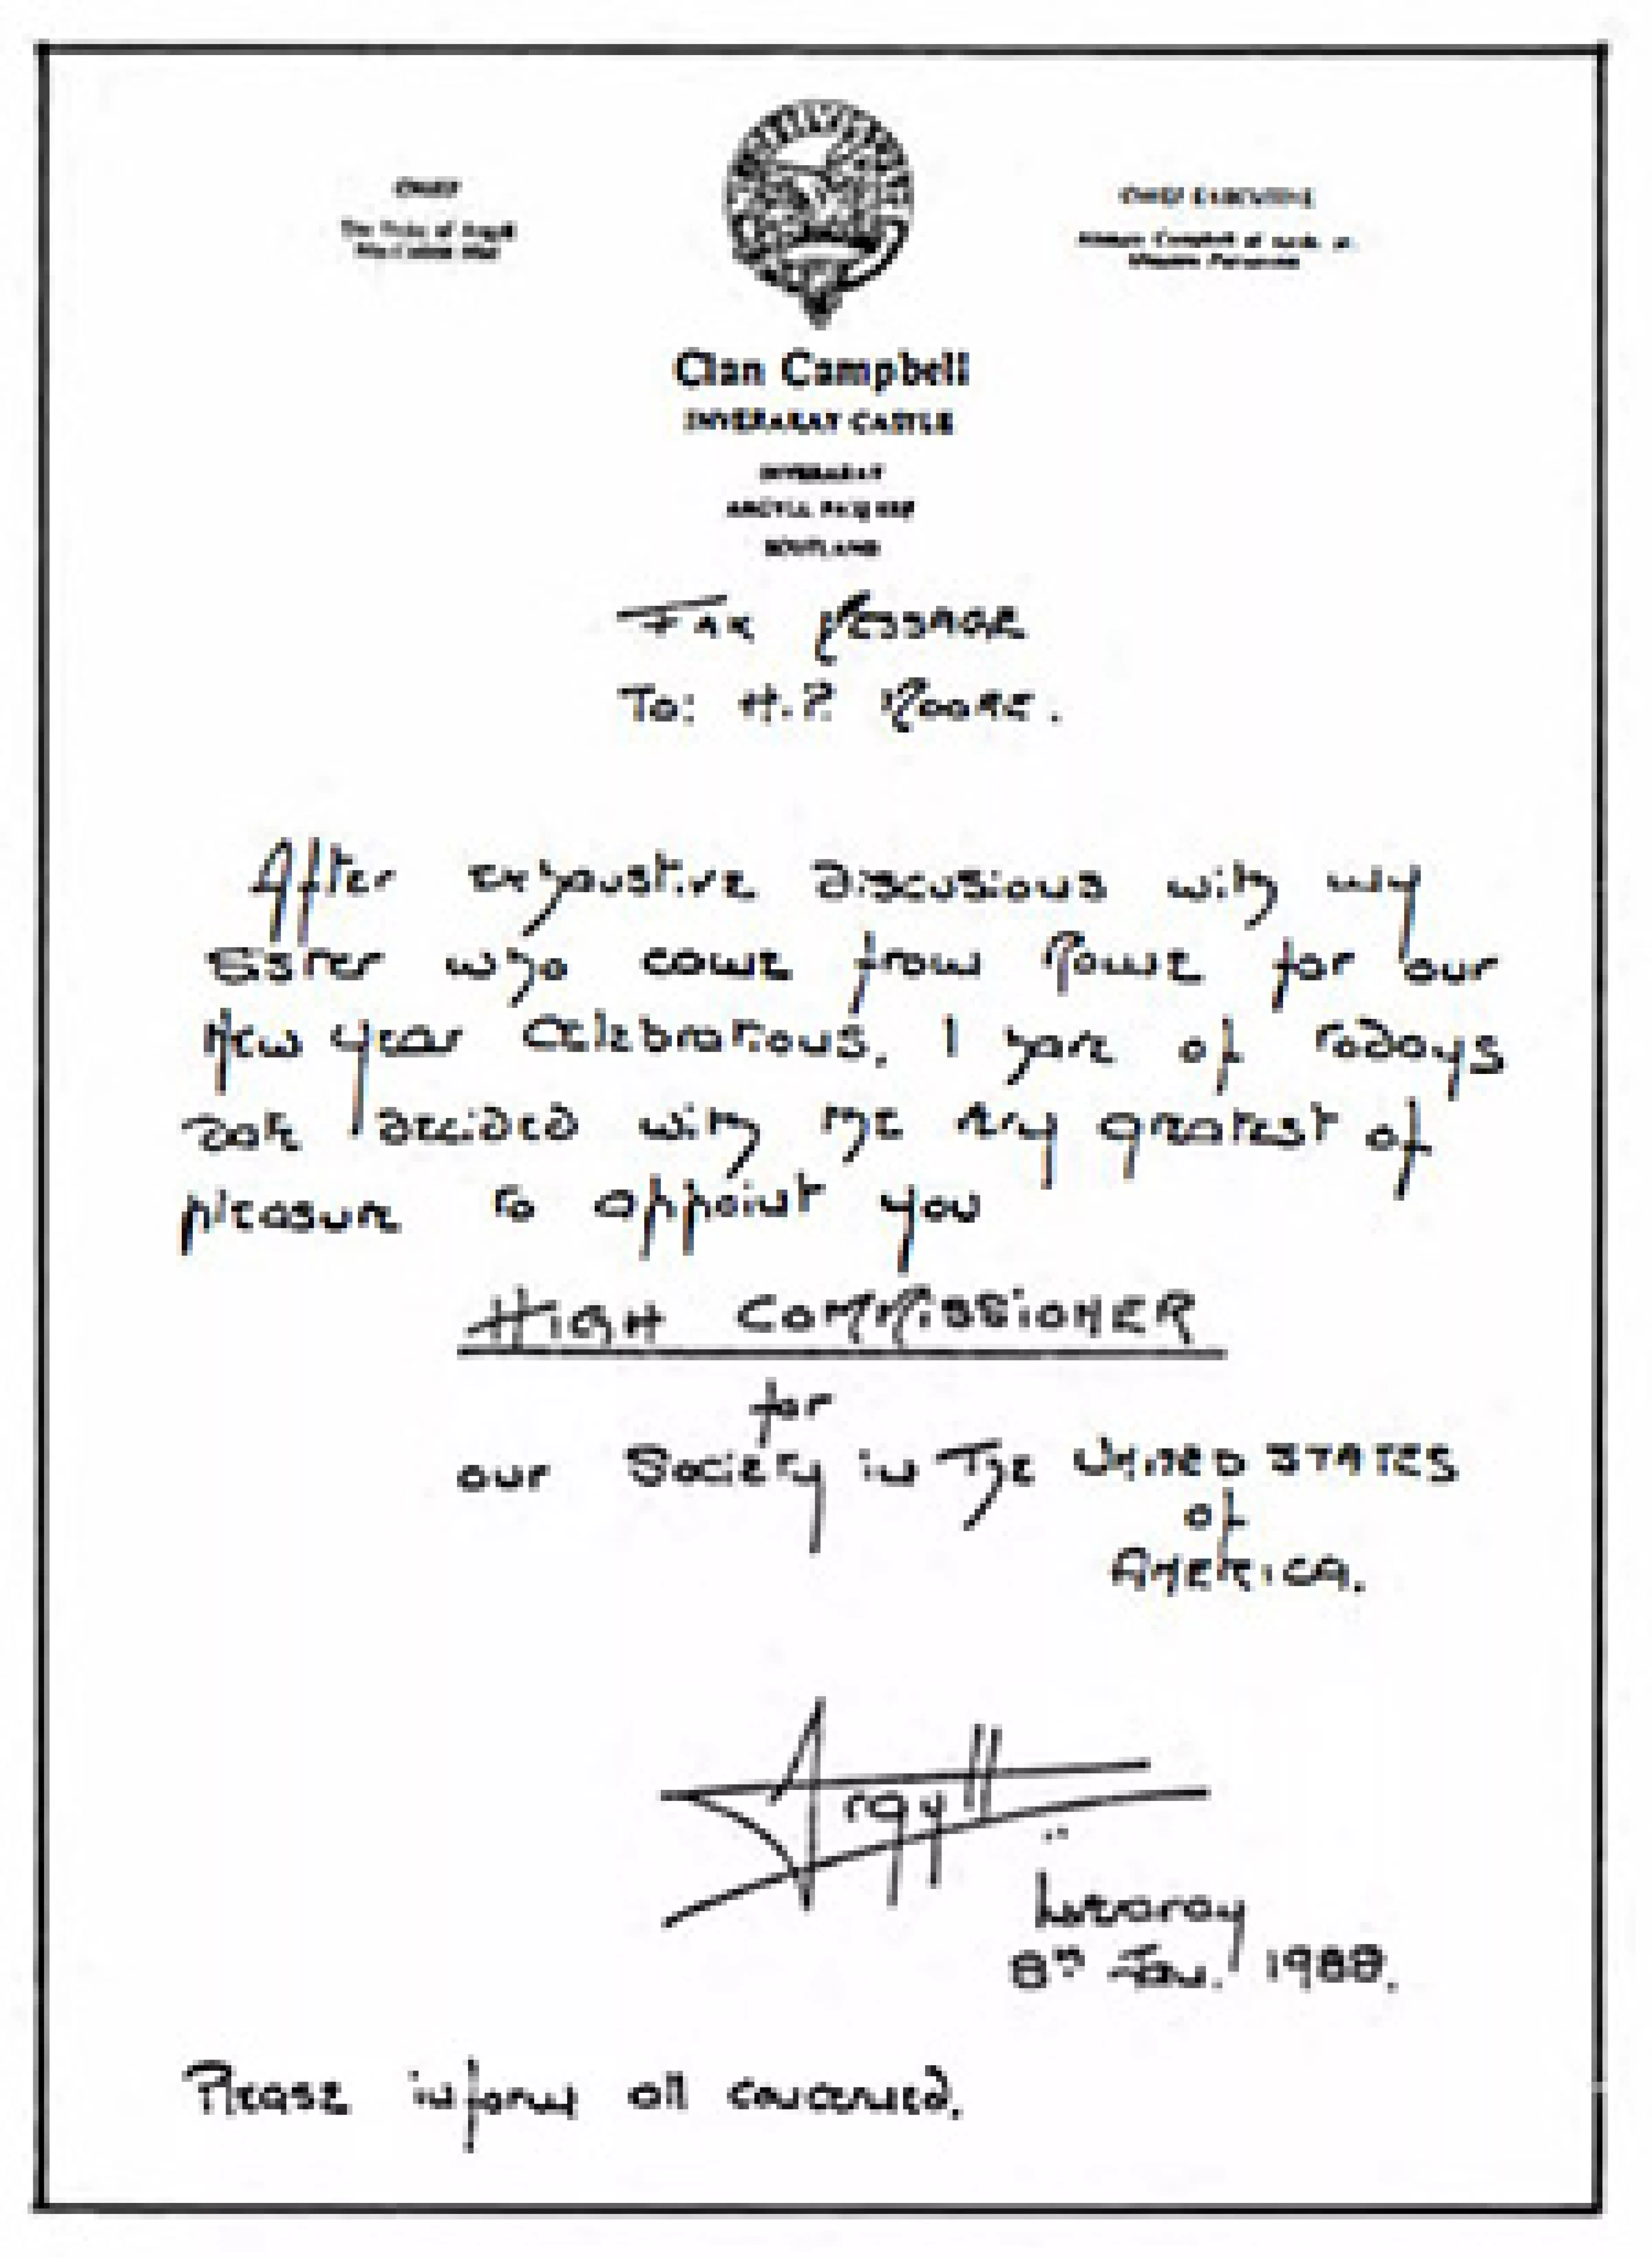 CHIEF
The Duke of Argyll
CHIEF EXECUTIVE
Clan Campbell
INVERARAY CASTLE
INVERARAY
ARGYLL
SCOTLAND
FAX MESSAGE
To: H.P. MOORE.
After exhaustive discusions with my
sister who came from Rome for our
New Year Celebrations, I have of todays
date decided with the very greatest of
pleasure to appoint you
HIGH COMMISSIONER
for
our Society in The UNITED STATES
of
AMERICA.
Argyll
Inveraray
8th Jan. 1988.
Please inform all concerned.